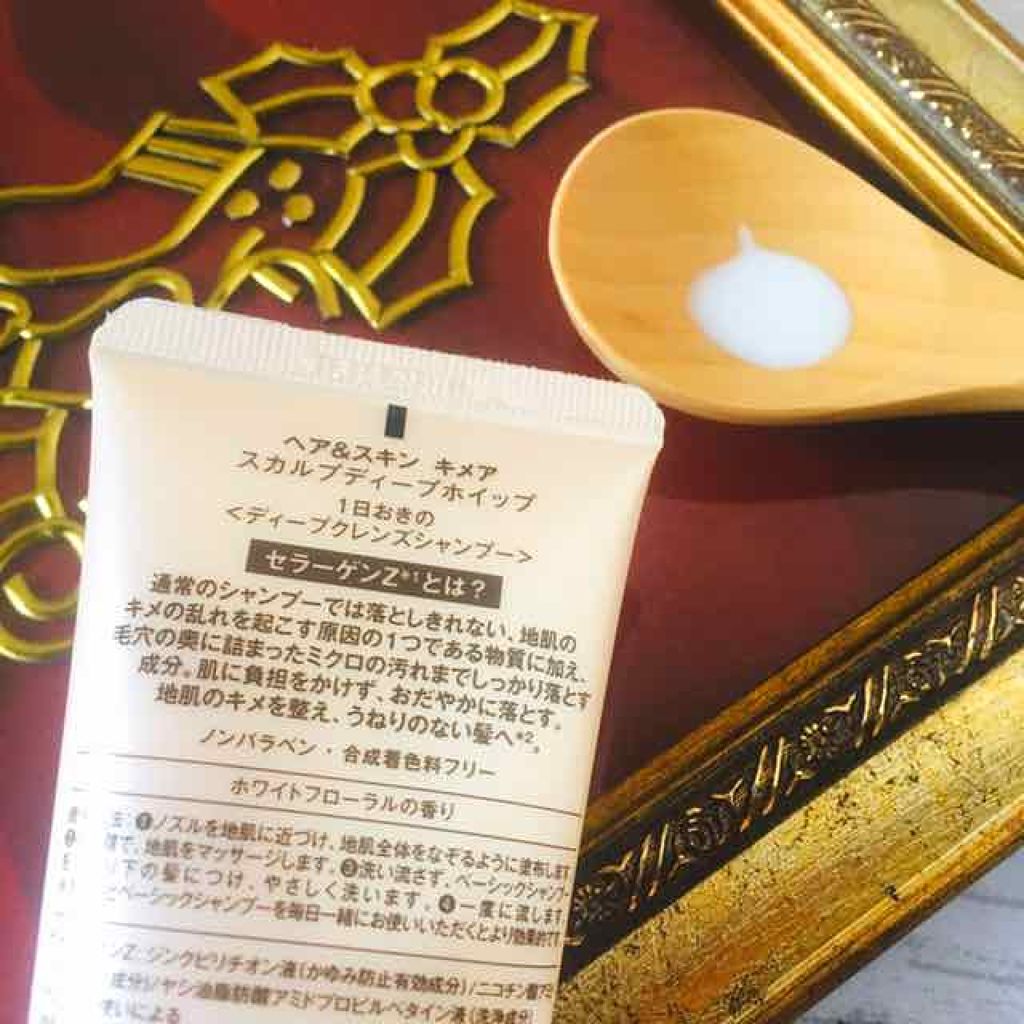 ヘア&スキン キメア
スカルプディープホイップ
1日おきの
<ディープクレンズシャンプー>
セラーゲンZ*1とは?
通常のシャンプーでは落としきれない、地肌の
キメの乱れを起こす原因の1つである物質に加え、
毛穴の奥に詰まったミクロの汚れまでしっかり落とす
成分。肌に負担をかけず、おだやかに落とす。
地肌のキメを整え、うねりのない髪へ*2。
ノンパラベン・合成着色料フリー
ホワイトフローラルの香り
❶ノズルを地肌に近づけ、地肌全体をなぞるように塗布します
で、地肌をマッサージします。❸洗い流さず、ベーシックシャンプ
下の髪につけ、やさしく洗います。❹一度に流します
ベーシックシャンプーを毎日一緒にお使いいただくとより効果的です
ンZ:ジンクピリチオン液(かゆみ防止有効成分)/ニコチン酸
成分)/ヤシ油脂肪酸アミドプロピルベタイン液(洗浄成分)
いによる